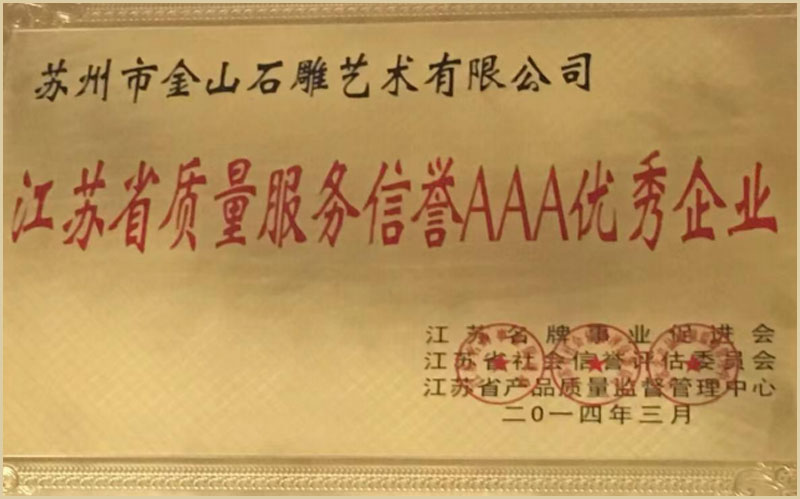 苏州市金山石雕艺术有限公司
江苏省质量服务信誉AAA优秀企业
江苏名牌事业促进会
江苏省社会信誉评估委员会
江苏省产品质量监督管理中心
二〇一四年三月